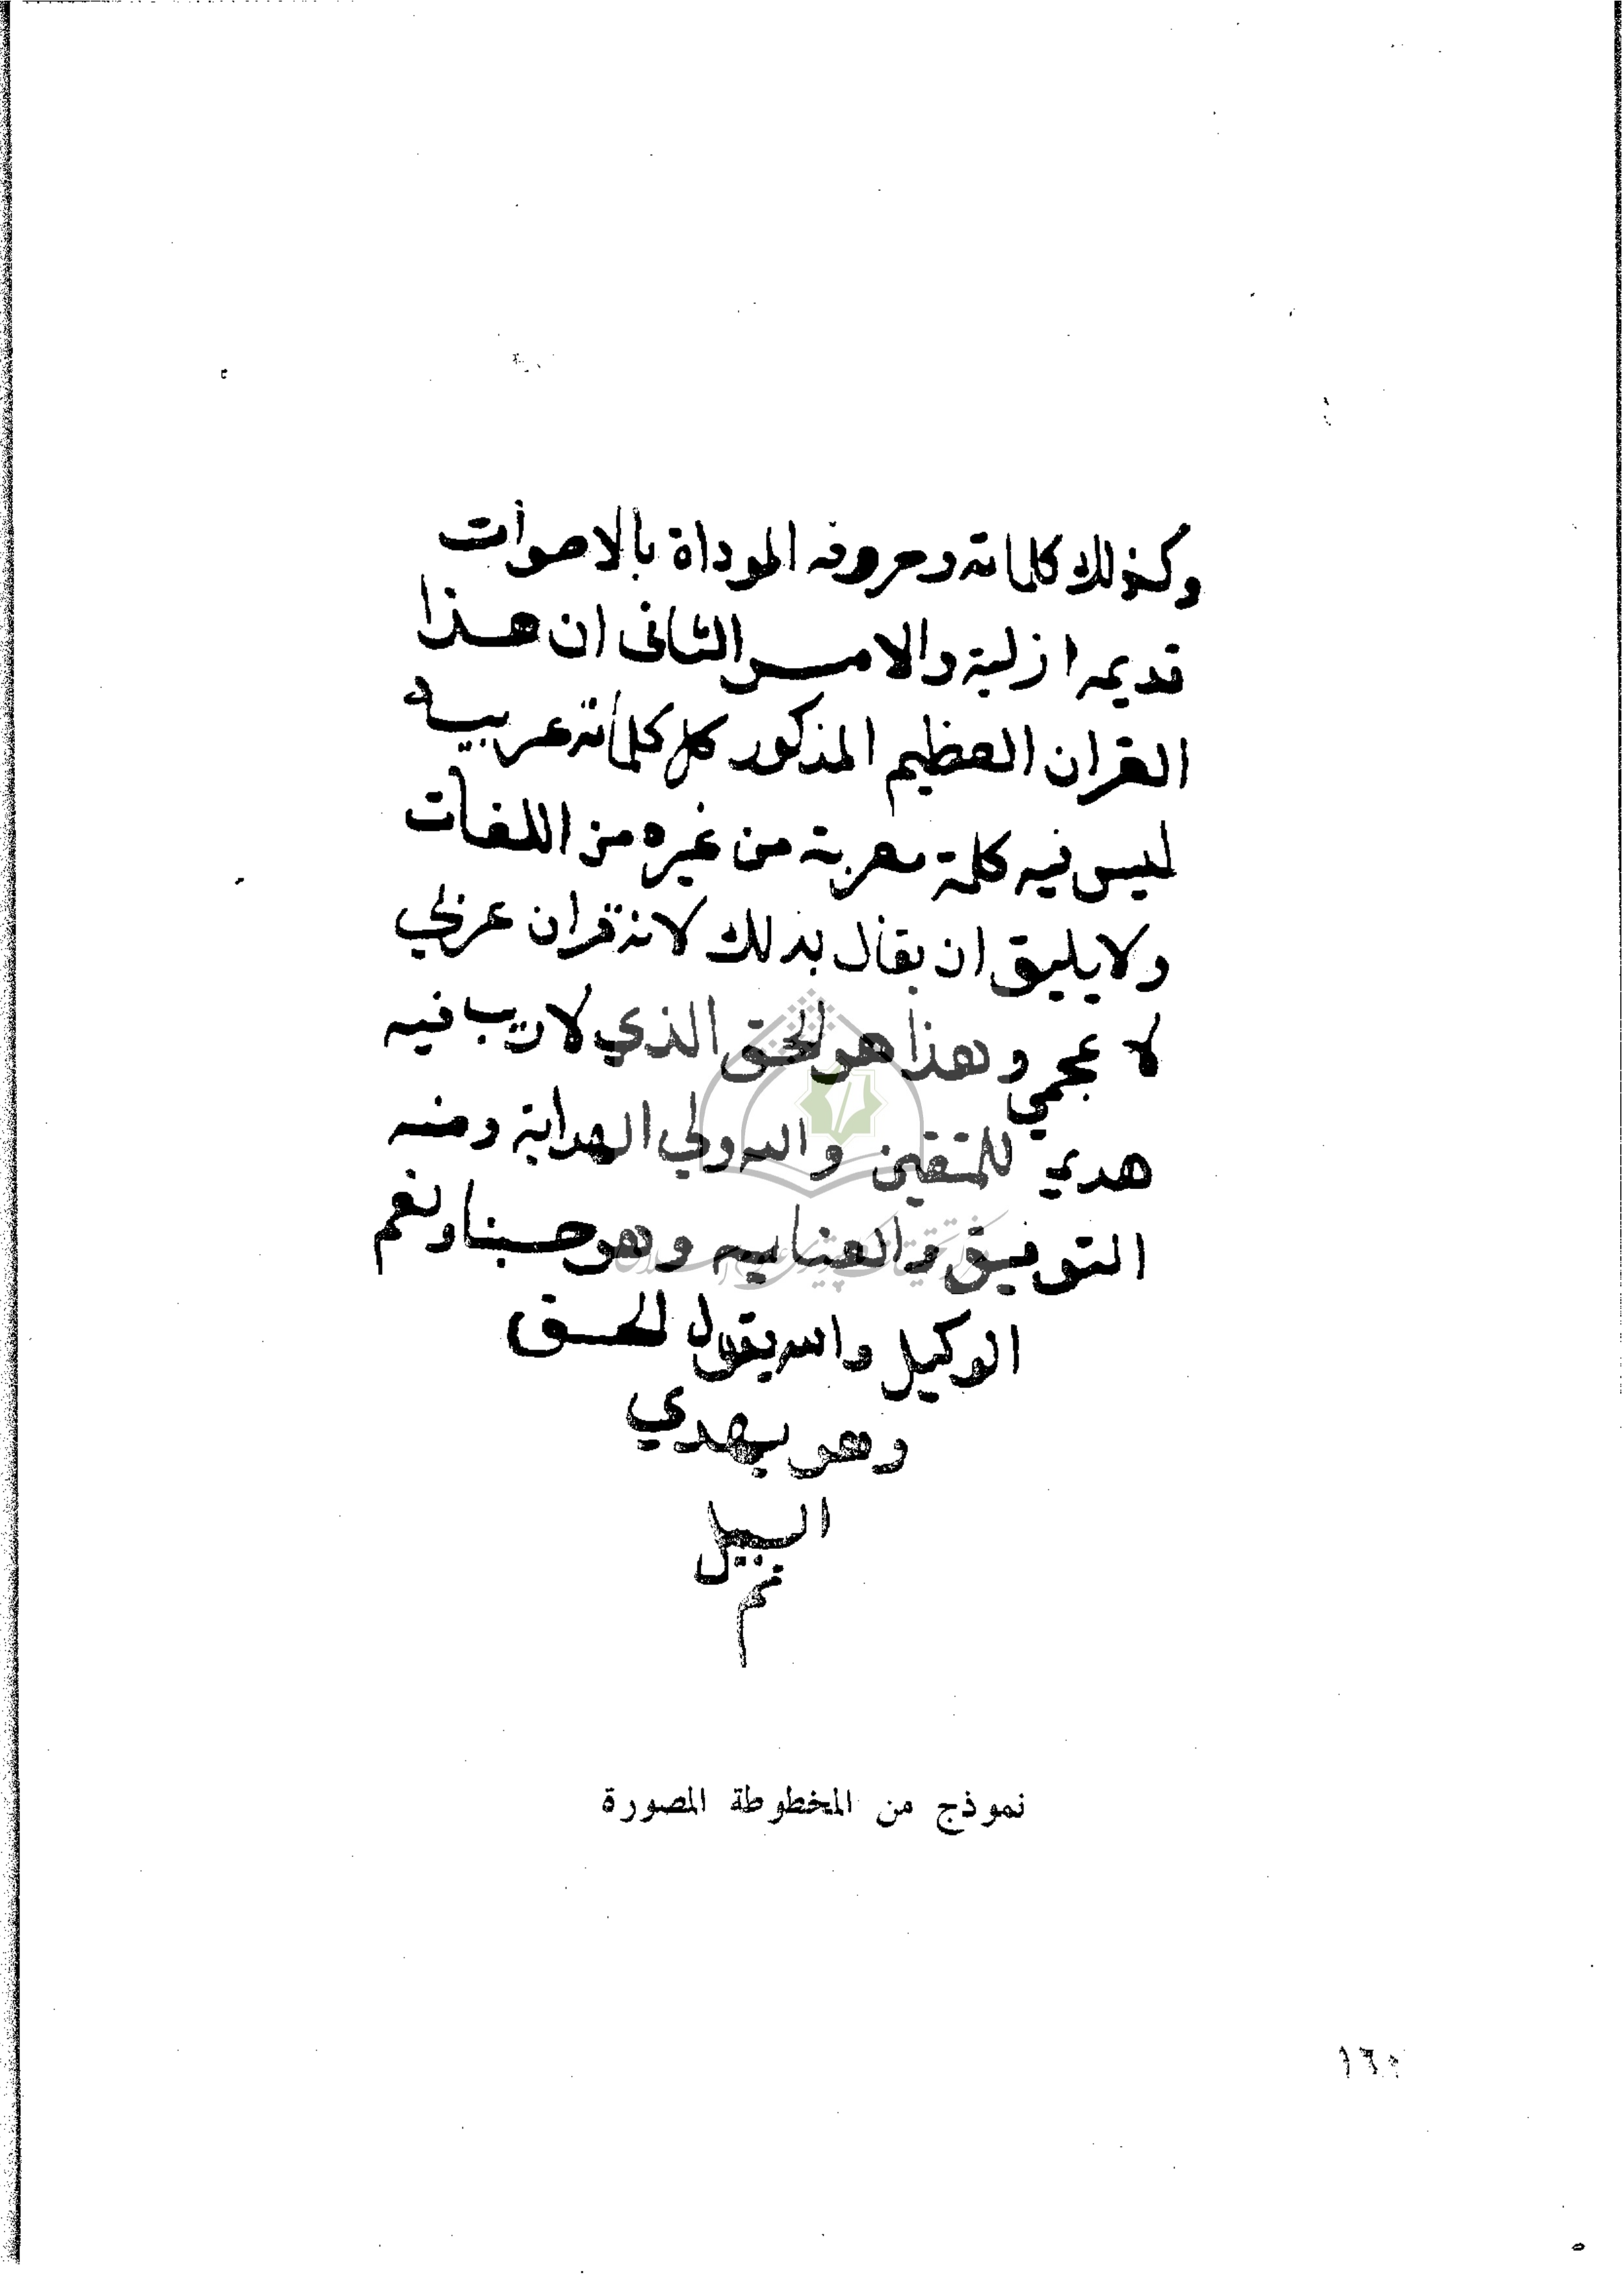 وكذلك كلماته وحروفه الموداة بالاصوات
قديمه ازلية والامر الثانى ان هذا
القران العظيم المذكور كل كلماته عربيه
ليس فيه كلمة معربة من غيره من اللغات
ولا يليق ان يقال بذلك لانه قران عربي
لا عجمي وهذا هو الحق الذي لا ريب فيه
هدي للمتقين والله ولي الهداية ومنه
التوفيق والعنايه وهو حسبنا ونعم
الوكيل والله يقول الحق
وهو يهدي
السبيل
تم
نموذج من المخطوطة المصورة